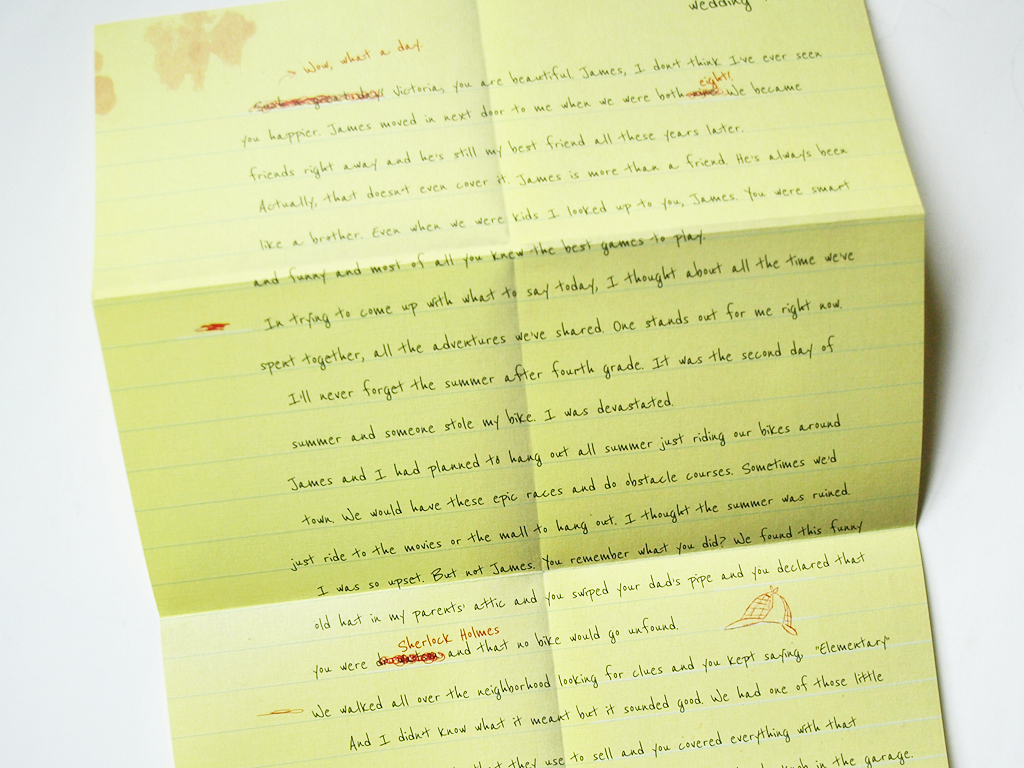 wedding
Wow, what a day.
Victoria, you are beautiful. James, I don't think I've ever seen
eight!
you happier. James moved in next door to me when we were both We became
friends right away and he's still my best friend all these years later.
Actually, that doesn't even cover it. James is more than a friend. He's always been
like a brother. Even when we were kids I looked up to you, James. You were smart
and funny and most of all you knew the best games to play.
In trying to come up with what to say today, I thought about all the time we've
spent together, all the adventures we've shared. One stands out for me right now.
I'll never forget the summer after fourth grade. It was the second day of
summer and someone stole my bike. I was devastated.
James and I had planned to hang out all summer just riding our bikes around
town. We would have these epic races and do obstacle courses. Sometimes we'd
just ride to the movies or the mall to hang out. I thought the summer was ruined.
I was so upset. But not James. You remember what you did? We found this funny
old hat in my parents' attic and you swiped your dad's pipe and you declared that
Sherlock Holmes
you were and that no bike would go unfound.
We walked all over the neighborhood looking for clues and you kept saying, "Elementary"
And I didn't know what it meant but it sounded good. We had one of those little
that they use to sell and you covered everything with that
knob in the garage.